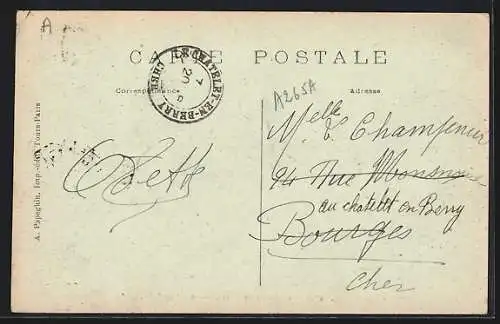 A
CARTE POSTALE
LE CHATELET-EN-BERRY
CHER
7
20
Correspondance
Adresse
A265A
Melle C. Champeneur
94 Rue
au chatelet en Berry
Bourges
Cher
Odette
A. Papeghin, Imp.-édit. Tours-Paris